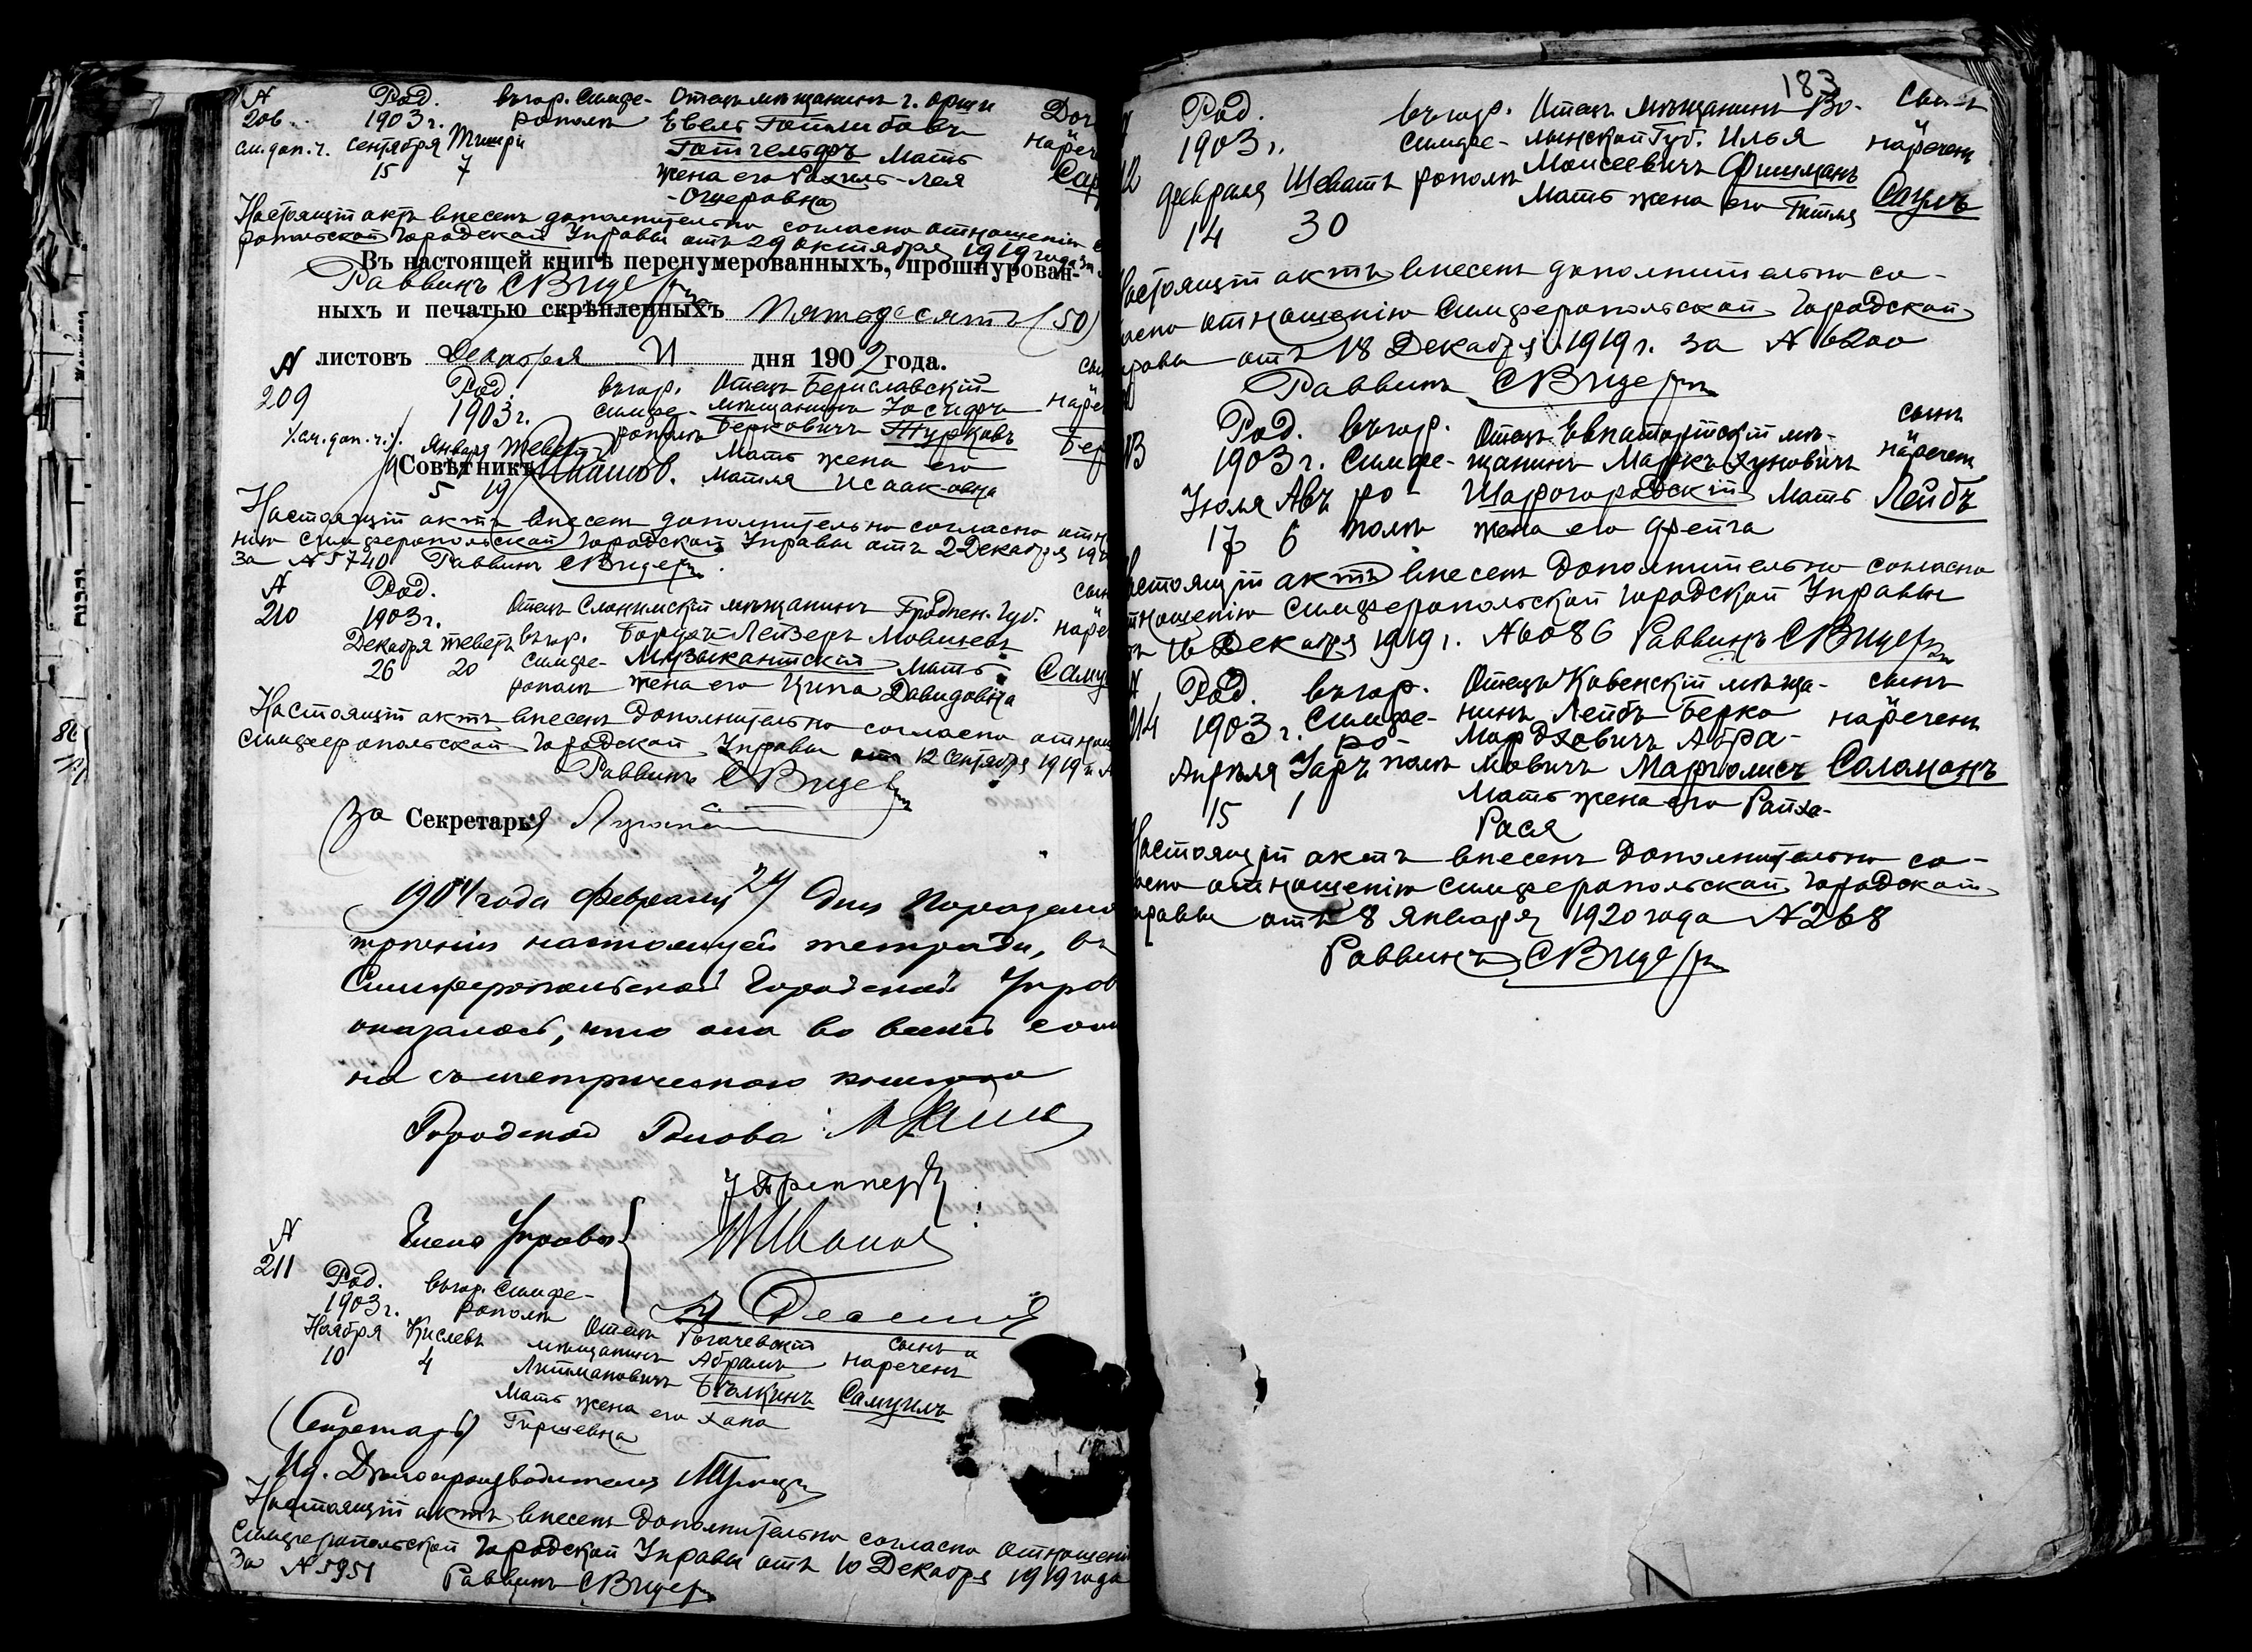 № 206
см. доп. ч.
Род. 1903 г.
Сентября Тишри
15 7
въ гор. Симфе-
рополѣ
Отецъ мѣщанинъ г. Орши
Евель Готлибовъ
Готгельфъ Мать
жена его Рахиль-Лея
-Ошеровна
Доч
нареч
Сар
Настоящій актъ внесенъ дополнительно согласно отношенію
ропольской Городской Управы отъ 29 октября 1919 года за
Въ настоящей книгѣ перенумерованныхъ, прошнурован-
Раввинъ
ныхъ и печатью скрѣпленныхъ Пятьдесятъ (50)
листовъ Декабря 11 дня 1902 года.
№ 209
см. доп. ч.
Род. 1903 г.
Января Тевет
5 19
въ гор.
Симфе-
рополѣ
Отецъ Бериславскій
мѣщанинъ Іосифъ
Берковичъ Турковъ
Мать жена его
Матля Исааковна
сын
наре
Бер
Совѣтникъ
Настоящій актъ внесенъ дополнительно согласно отно
нію Симферопольской Городской Управы отъ 2 Декабря 191
за № 5740 Раввинъ
№ 210
Род. 1903 г.
Декабря Теветъ
26 20
въ гор.
Симфе-
рополѣ
Отецъ Слонимскій мѣщанинъ Гроднен. Губ.
Борухъ-Лейзеръ Мовшевъ
Музыкантскій Мать
жена его Ципа Давидовна
сын
наре
Саму
Настоящій актъ внесенъ дополнительно согласно отнош
Симферопольской Городской Управы отъ 12 Сентября 1919 г. №
Раввинъ
За Секретаря
1904 года Февраля 24 дня
настоящей тетради, въ
Симферопольской Городской Управ
оказалось, что она во всемъ
Городской Голова
Члены Управы
№ 211
Род. 1903 г.
Ноября Кислевъ
10 4
въ гор. Симфе-
рополѣ
Отецъ Рогачевскій
мѣщанинъ Абрамъ
Литмановичъ Бѣлкинъ
Мать жена его Хана
Гиршевна
сынъ
нареченъ
Самуилъ
Секретарь
Ид. Дѣлопроизводителя
Настоящій актъ внесенъ дополнительно согласно отношені
Симферопольской Городской Управы отъ 10 Декабря 1919 года
за № 5951 Раввинъ
183
Род. 1903 г.
Февраля Шеватъ
14 30
въ гор.
Симфе-
рополѣ
Отецъ мѣщанинъ Во-
лынской Губ. Илья
Моисеевичъ Фишманъ
Мать жена его Гитля
сынъ
нареченъ
Саулъ
астоящій актъ внесенъ дополнительно со-
асно отношенію Симферопольской Городской
правы отъ 18 Декабря 1919 г. за № 6200
Раввинъ
13
Род. 1903 г.
Іюля Авъ
17 6
въ гор.
Симфе-
ро-
полѣ
Отецъ Евпаторійскій мѣ-
щанинъ Маркъ Хуновичъ
Шарогородскій Мать
жена его Фейга
сынъ
нареченъ
Лейбъ
астоящій актъ внесенъ дополнительно согласно
тношенію Симферопольской Городской Управы
16 Декабря 1919 г. № 6086 Раввинъ
214
Род. 1903 г.
Апрѣля Іаръ
15 1
въ гор.
Симфе-
ро-
полѣ
Отецъ Ковенскій мѣща-
нинъ Лейбъ Берко
Мордховичъ Абра-
мовичъ Марголисъ
Мать жена его Райха-
Рася
сынъ
нареченъ
Соломонъ
астоящій актъ внесенъ дополнительно со-
асно отношенію Симферопольской Городской
правы отъ 8 Января 1920 года № 268
Раввинъ